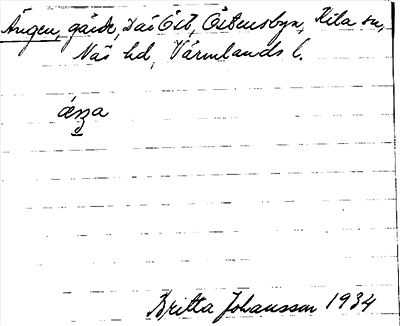 Ängen, gärde, Östensbyn, Kila sn,
Näs hd, Värmlands l.
Britta Johansson 1934